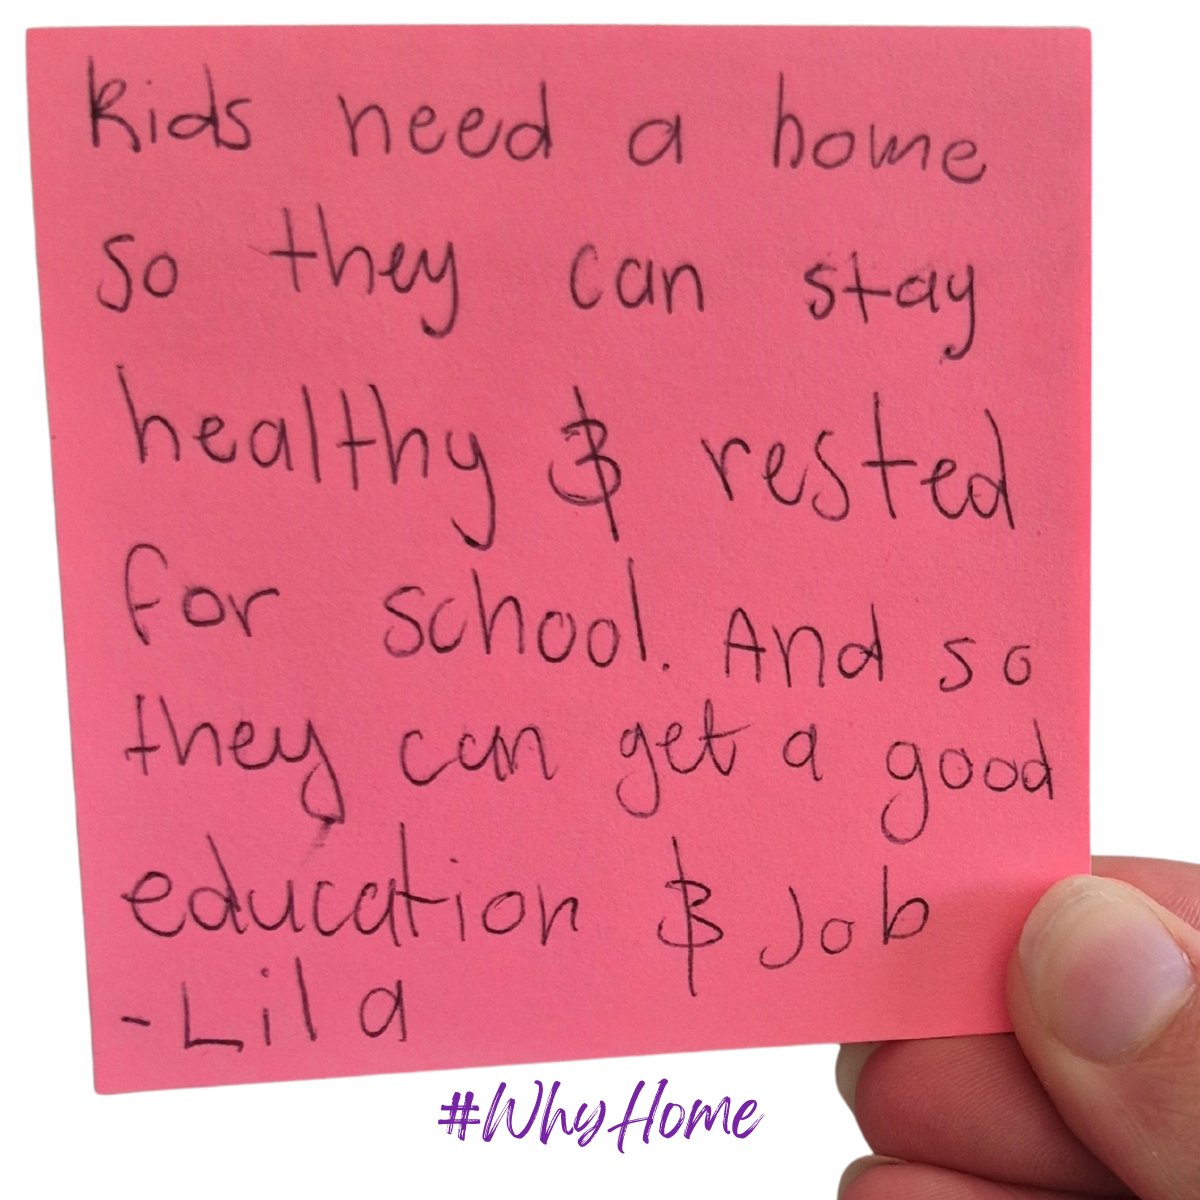 Kids need a home
so they can stay
healthy & rested
for school. And so
they can get a good
education & Job
- Lila
#WhyHome